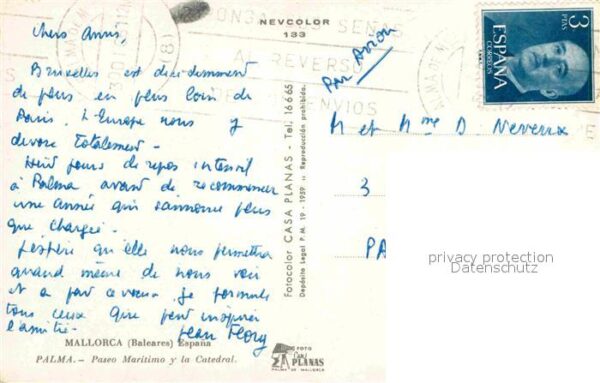 NEVCOLOR
133
PONGA SUS SEÑAS
AL REVERSO
DE SUS ENVIOS
Chers Amis,
Bruxelles est décidemment
de plus en plus loin de
Paris. L'Europe nous y
dévore totalement -
Huit jours de repos intensif
à Palma avant de recommencer
une année qui s'annonce plus
que chargée.
J'espère qu'elle nous permettra
quand même de nous voir
et à par ce voeux je formule
tous ceux que peut inspirer
l'amitié.
Jean Flory
MALLORCA (Baleares) España
PALMA.- Paseo Marítimo y la Catedral.
Fotocolor CASA PLANAS - Tel. 16665
Depósito Legal P.M. 19-1959 // Reproducción prohibida.
FOTO
Casa
PLANAS
PALMA DE MALLORCA
Par Avion
3
PTAS
CORREOS
ESPAÑA
M et Mme D. Neveux
3
PA
privacy protection
Datenschutz